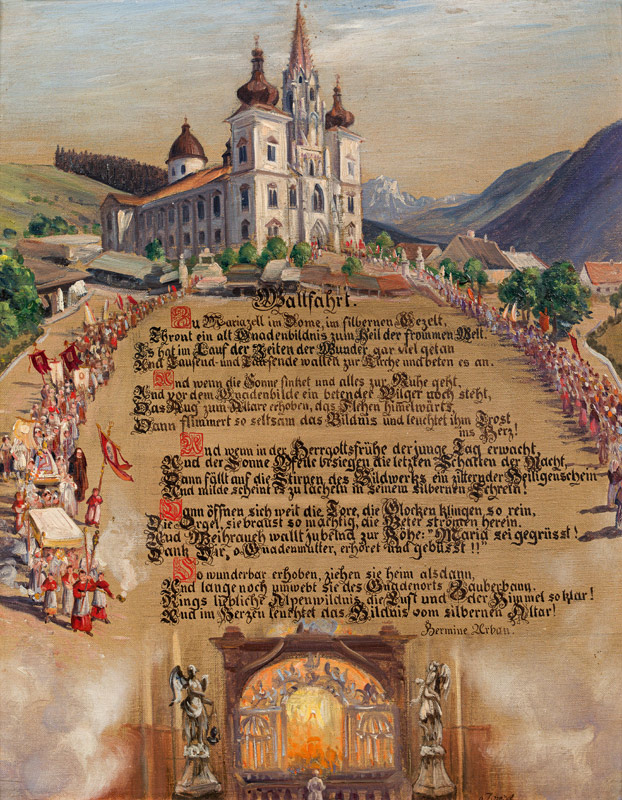 Wallfahrt.
Zu Mariazell im Dome, im silbernen Gezelt,
Thront ein alt Gnadenbildnis zum Heil der frommen Welt.
Es hat im Lauf der Zeiten der Wunder gar viel getan
Und Tausend- und Tausende wallen zur Kirche und beten es an.
Und wenn die Sonne sinket und alles zur Ruhe geht,
Und vor dem Gnadenbilde ein betender Pilger noch steht,
Das Aug' zum Altare erhoben, das Flehen himelwärts,
Dann flimmert so seltsam das Bildnis und leuchtet ihm Trost
ins Herz!
Und wenn in der Herrgottsfrühe der junge Tag erwacht,
Und der Sonne Pfeile besiegen die letzten Schatten der Nacht,
Dann fällt auf die Stirnen des Bildwerks ein zitternder Heiligenschein
Und milde scheint es zu lächeln in seinem silbernen Schrein!
Dann öffnen sich weit die Tore, die Glocken klingen so rein,
Die Orgel, sie braust so mächtig, die Beter strömen herein.
Und Weihrauch wallt zur Höhe: "Maria sei gegrüsst!
Dank Dir, o Gnadenmutter, erhöret und gebüsst!!
So wunderbar erhoben, ziehen sie heim alsdann,
Und lange noch umwebt sie des Gnadenorts Zauberbann.
Rings liebliche Alpenwildnis, die Luft und der Himmel so klar!
Und im Herzen leuchtet das Bildnis vom silbernen Altar!
Hermine Urban.